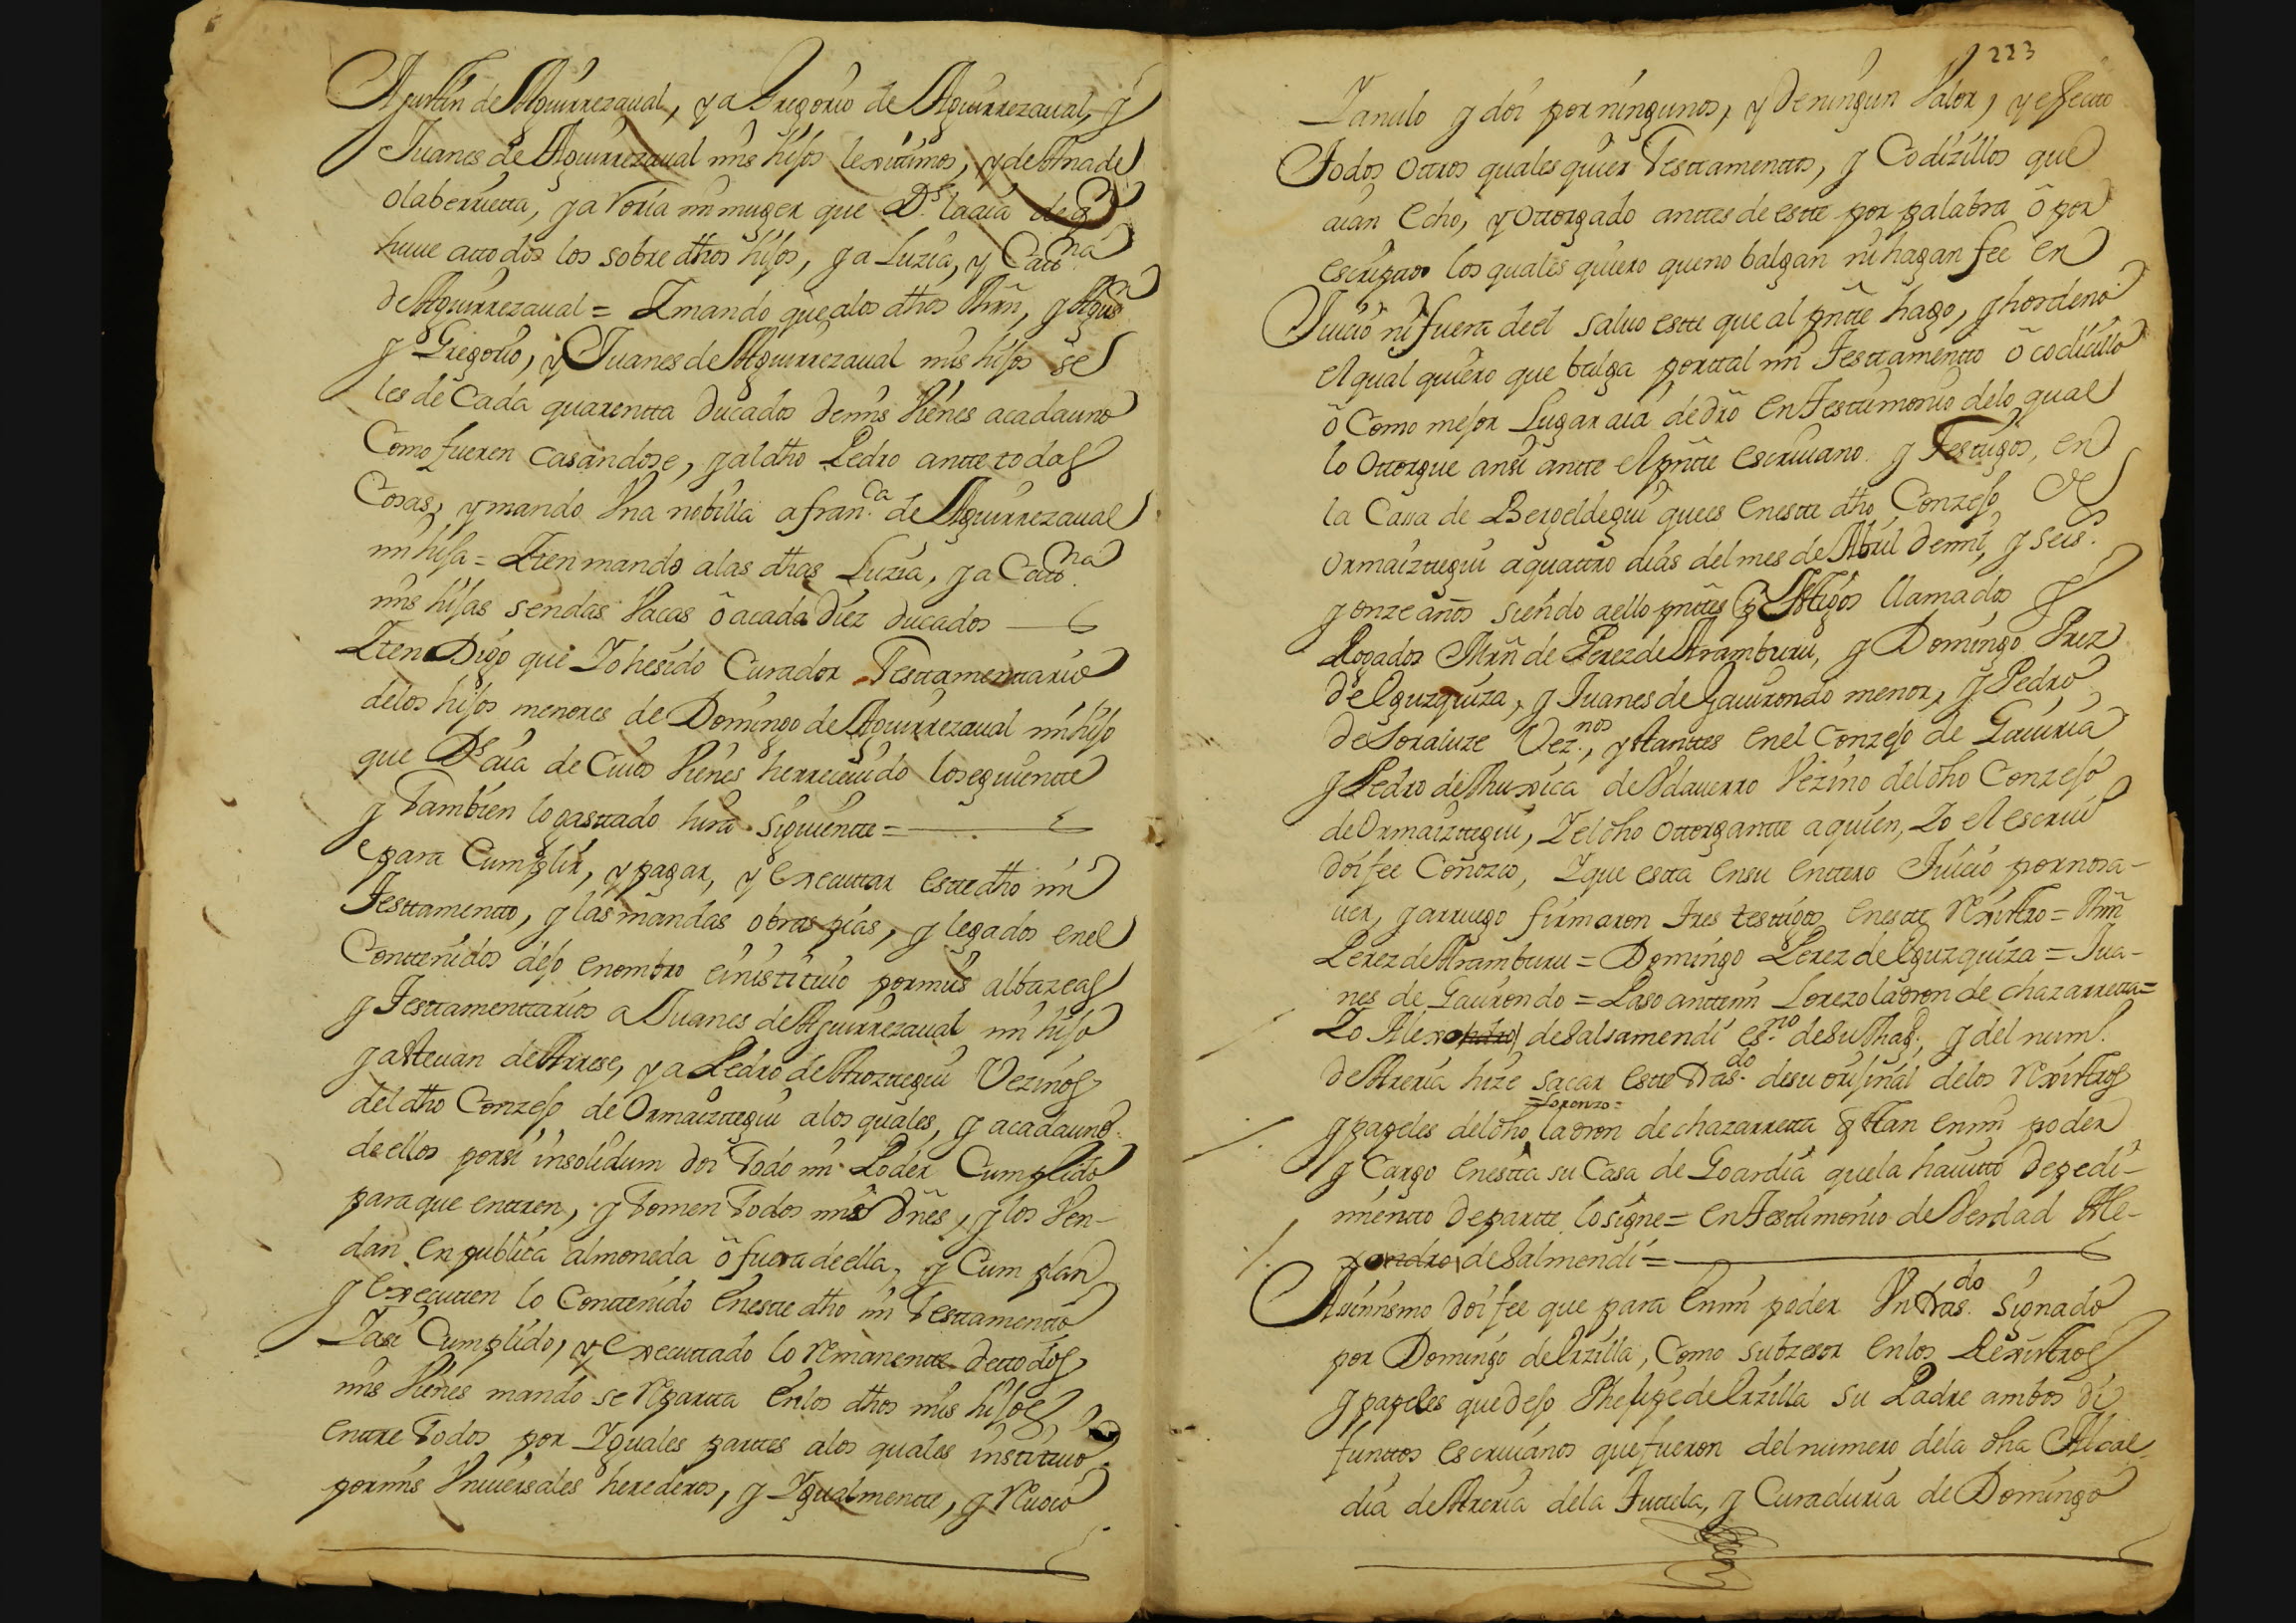 Agustin de Aguirrezaual, y a Gregorio de Aguirrezaual, y
Juanes de Aguirrezaual mis hijos lexitimos, y de Ana de
olaberrietta, y a Voria mi muger que Ds. la aia de q
huue a ttodos los sobre dhos hijos, y a Luzia, y Catt.na
de Aguirrezaual = Y mando que a los dhos Mrn, y Agus.n
y Gregorio, y Juanes de Aguirrezaual mis hijos se
les de Cada quarentta ducados de mis Vienes a cada uno
Como fueren casandose, y al dho Pedro antte todas
Cosas, y mando Vna nobilla a fran.ca de Aguirrezaual
mi hija = Itten mando a las dhas Luzia, y a Catt.na
mis hijas sendas Vacas ô a cada Diez ducados
Itten Digo que Yo he sido Curador Testtamenttario
de los hijos menores de Domingo de Aguirrezaual mi hijo
que Ds. aia de Cuios Vienes he rreceuido lo seguientte
y Tambien lo gasttado hira siguientte =
e para Cumplir, y pagar, y executtar estte dho mi
Testtamentto, y las mandas obras pias, y legados en el
Conttenidos dejo e nombro e inistituio por mis albazeas
y Testtamenttarios a Juanes de Aguirrezaual mi hijo
y a Steuan de Arrese, y a Pedro de Aroztegui Vezinos
del dho Conzejo de Ormaizttegui a los quales, y a cada uno
de ellos por si insolidum doi Todo mi Poder Cumplido
para que entren, y Tomen Todos mis Vnes, y los Ven-
dan en publica almoneda ô fuera de ella, y Cumplan
y executten lo Conttenido en estte dho mi Testtamentto
Y asi Cumplido, y executtado lo Remanentte de ttodos
mis Vienes mando se Repartta en los dhos mis hijos
enttre Todos por Yguales parttes a los quales instituio
por mis Vniuersales herederos, y Ygualmentte, y Reuoco
223
Y anulo y doi por ningunos, y de ningun Valor, y effectto
Todos ottros quales quier Testtamenttos, y Codizillos que
aian echo, y ottorgado anttes de estte por palabra ô por
escripto los quales quiero que no balgan ni hagan fee en
Juicio ni fuera de el saluo estte que al pntte hago, y hordeno
el qual quiero que balga por ttal mi Testtamentto ô codicillo
ô Como mejor Lugar aia de dro en Testtimonio de lo qual
lo ottorgue ansi antte el pntte escriuano y Testtigos, en
la Casa de Bergeldegui que es en estte dho Conzejo de
Ormaizttegui a quattro dias del mes de Abril de mil, y seis.
y onze anos siendo a ello pnttes por Testigos llamados y
Rogados Mrn de Perez de Aramburu, y Domingo Prez
de Eguzquiza, y Juanes de Gauirondo menor, y Pedro
de Soraluze Vez.nos, y Stanttes en el Conzejo de Gauiria
y Pedro de Muxica de Vdauerro Vezino del dho Conzejo
de Ormaizttegui, Y el dho ottorgantte a quien, Yo el escriu.
doi fee Conozco, Y que estta en su enttero Juicio por no sa-
uer, y a rruego firmaron Tres testtigos en estte Rexistro = Mrn
Perez de Aramburu = Domingo Perez de Eguzquiza = Jua-
nes de Gauirondo = Paso antte mi Lorezo ladron de chazarretta =
Yo Alexandro de Salsamendi es.no de su Mag. y del num.
de Areria hize sacar estte tras.do de su orijinal de los Rexistros
=Lorenzo=
y papeles del dho ladron de chazarretta que Stan en mi poder
y Cargo en estta su Casa de Goardia que la hauitto de pedi-
mientto de partte lo signe = en Testtimonio de Verdad Ale-
xandro de Salmendi =
Assimismo doi fee que para en mi poder Vn tras.do signado
por Domingo de Irzilla, Como subzesor en los Rexistros
y papeles que dejo Phelipe de Irzilla su Padre ambos di
funttos escriuanos que fueron del numero de la dha Alcal
dia de Areria de la Tuttela, y Curaduria de Domingo